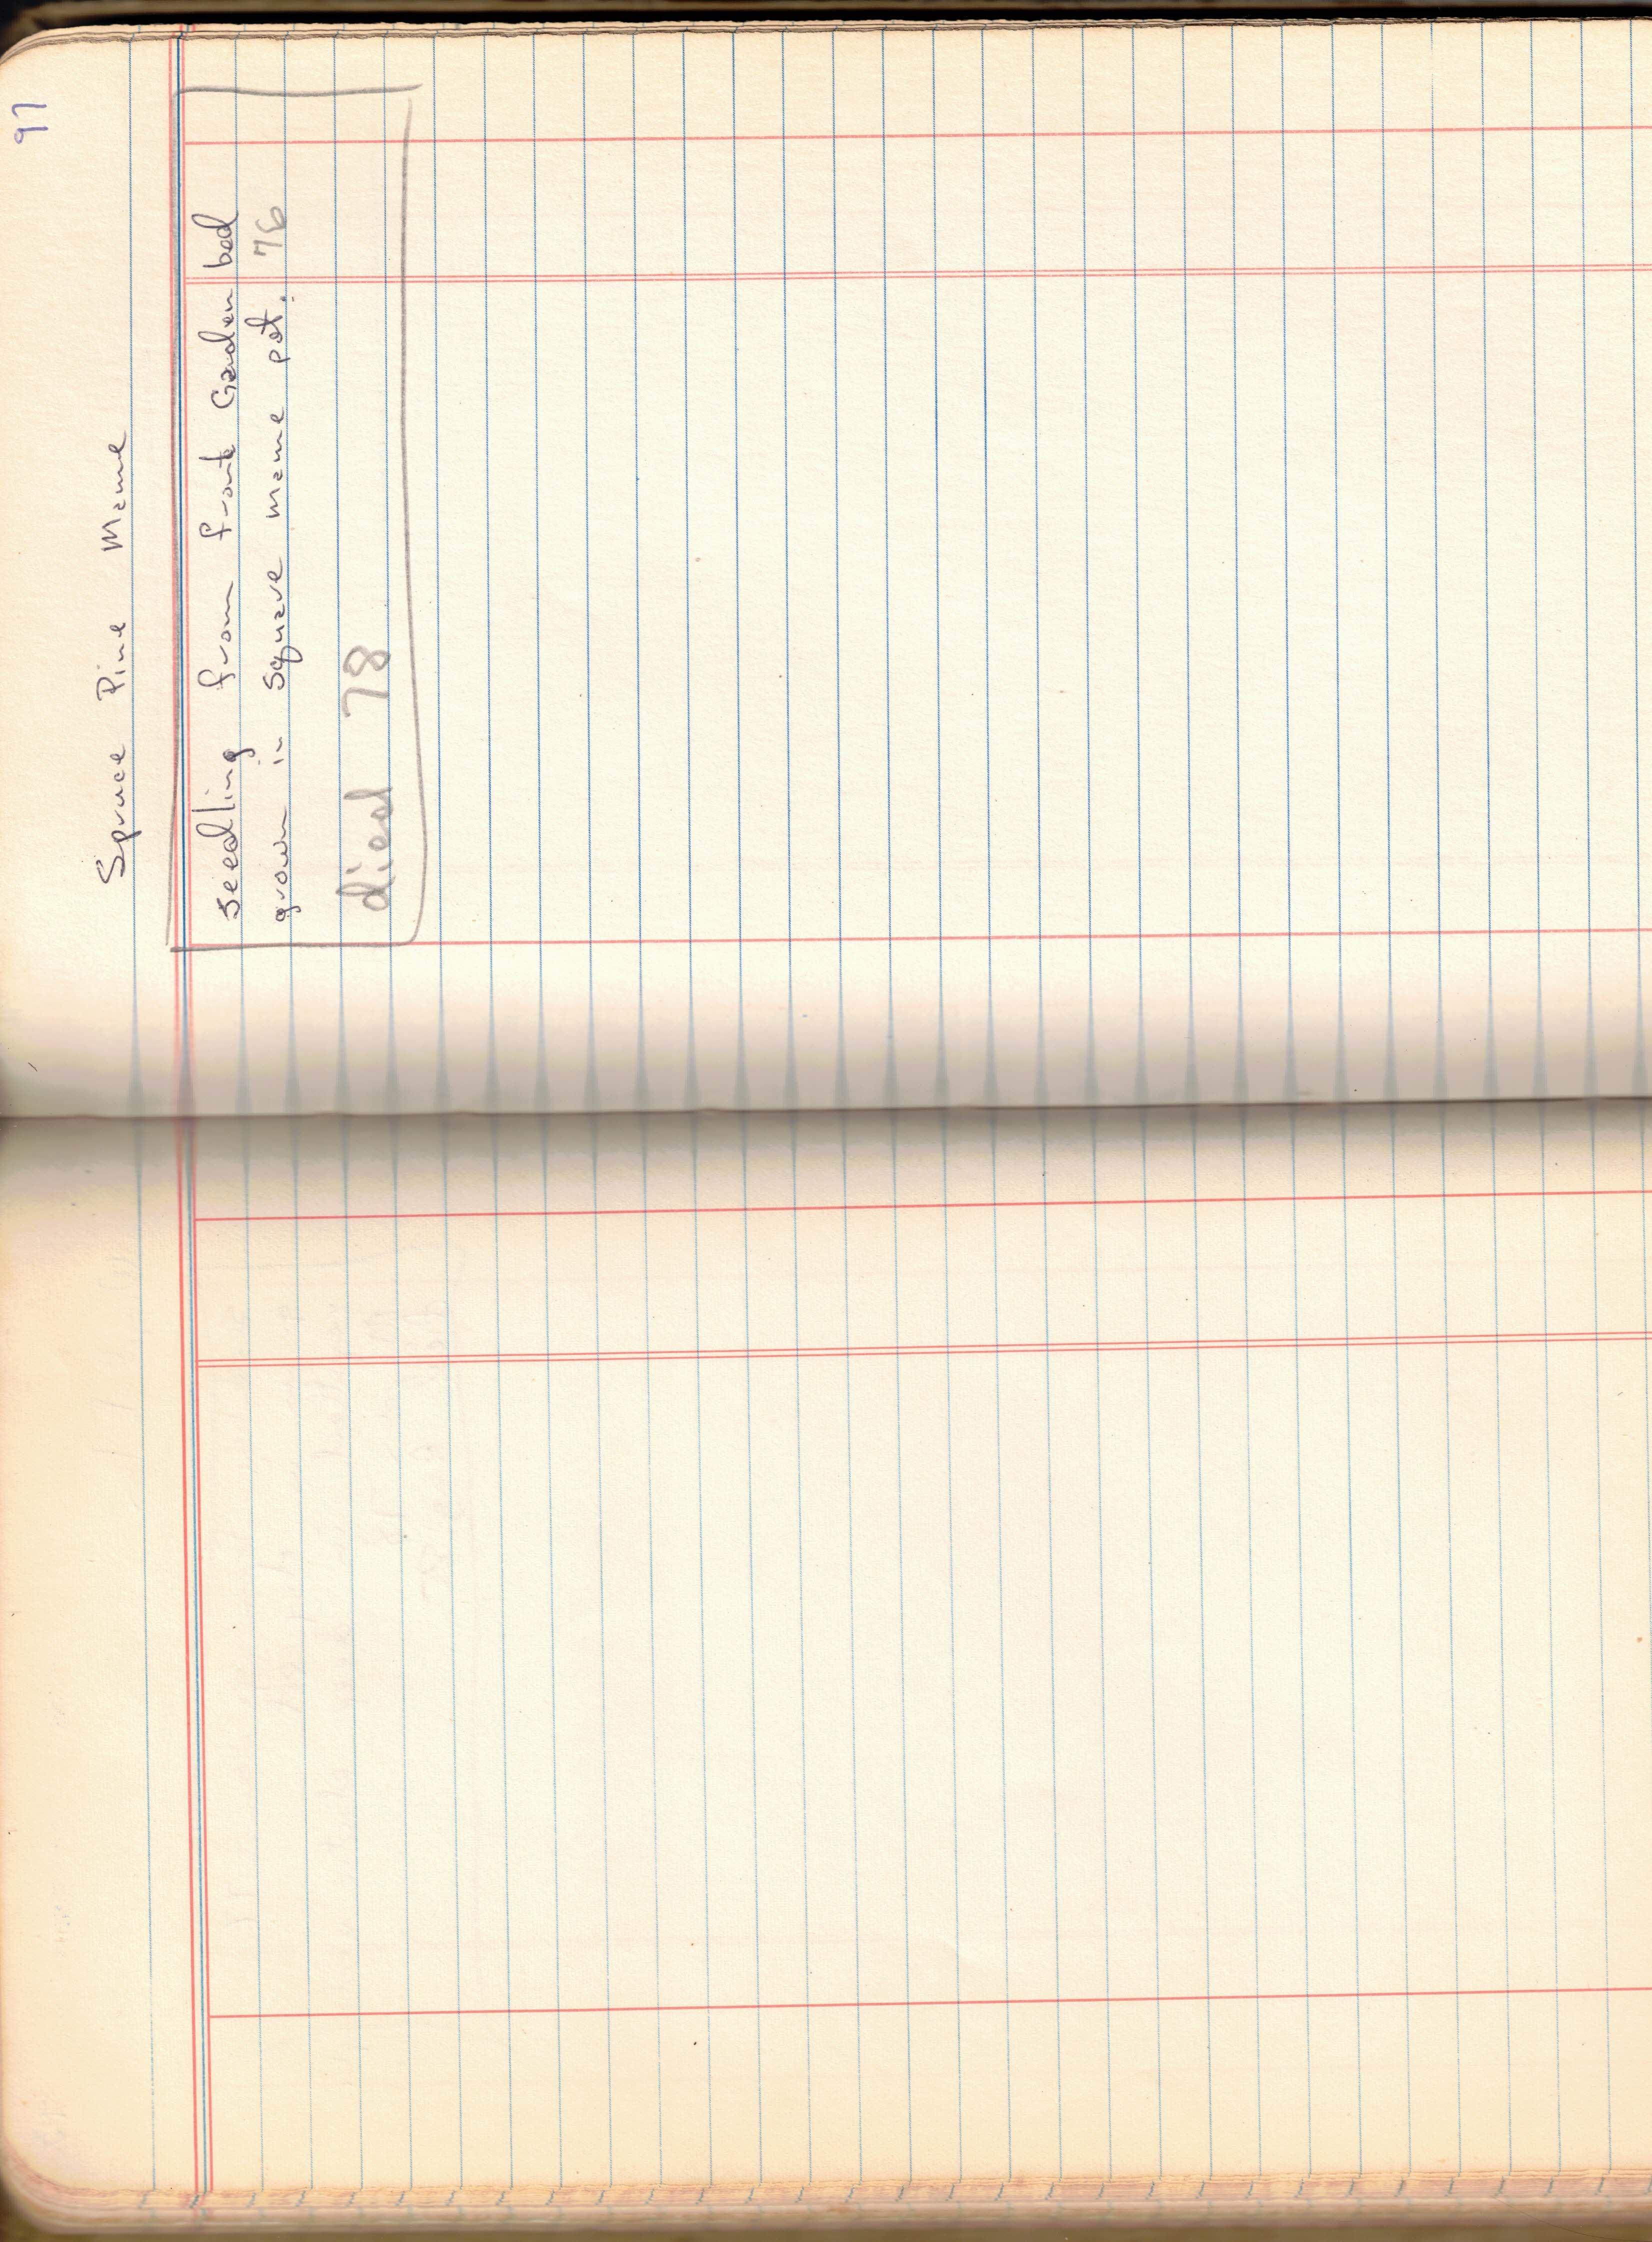 97
Spruce Pine Mame
seedling from front Garden bed
grown in square mame pot. 76
died 78